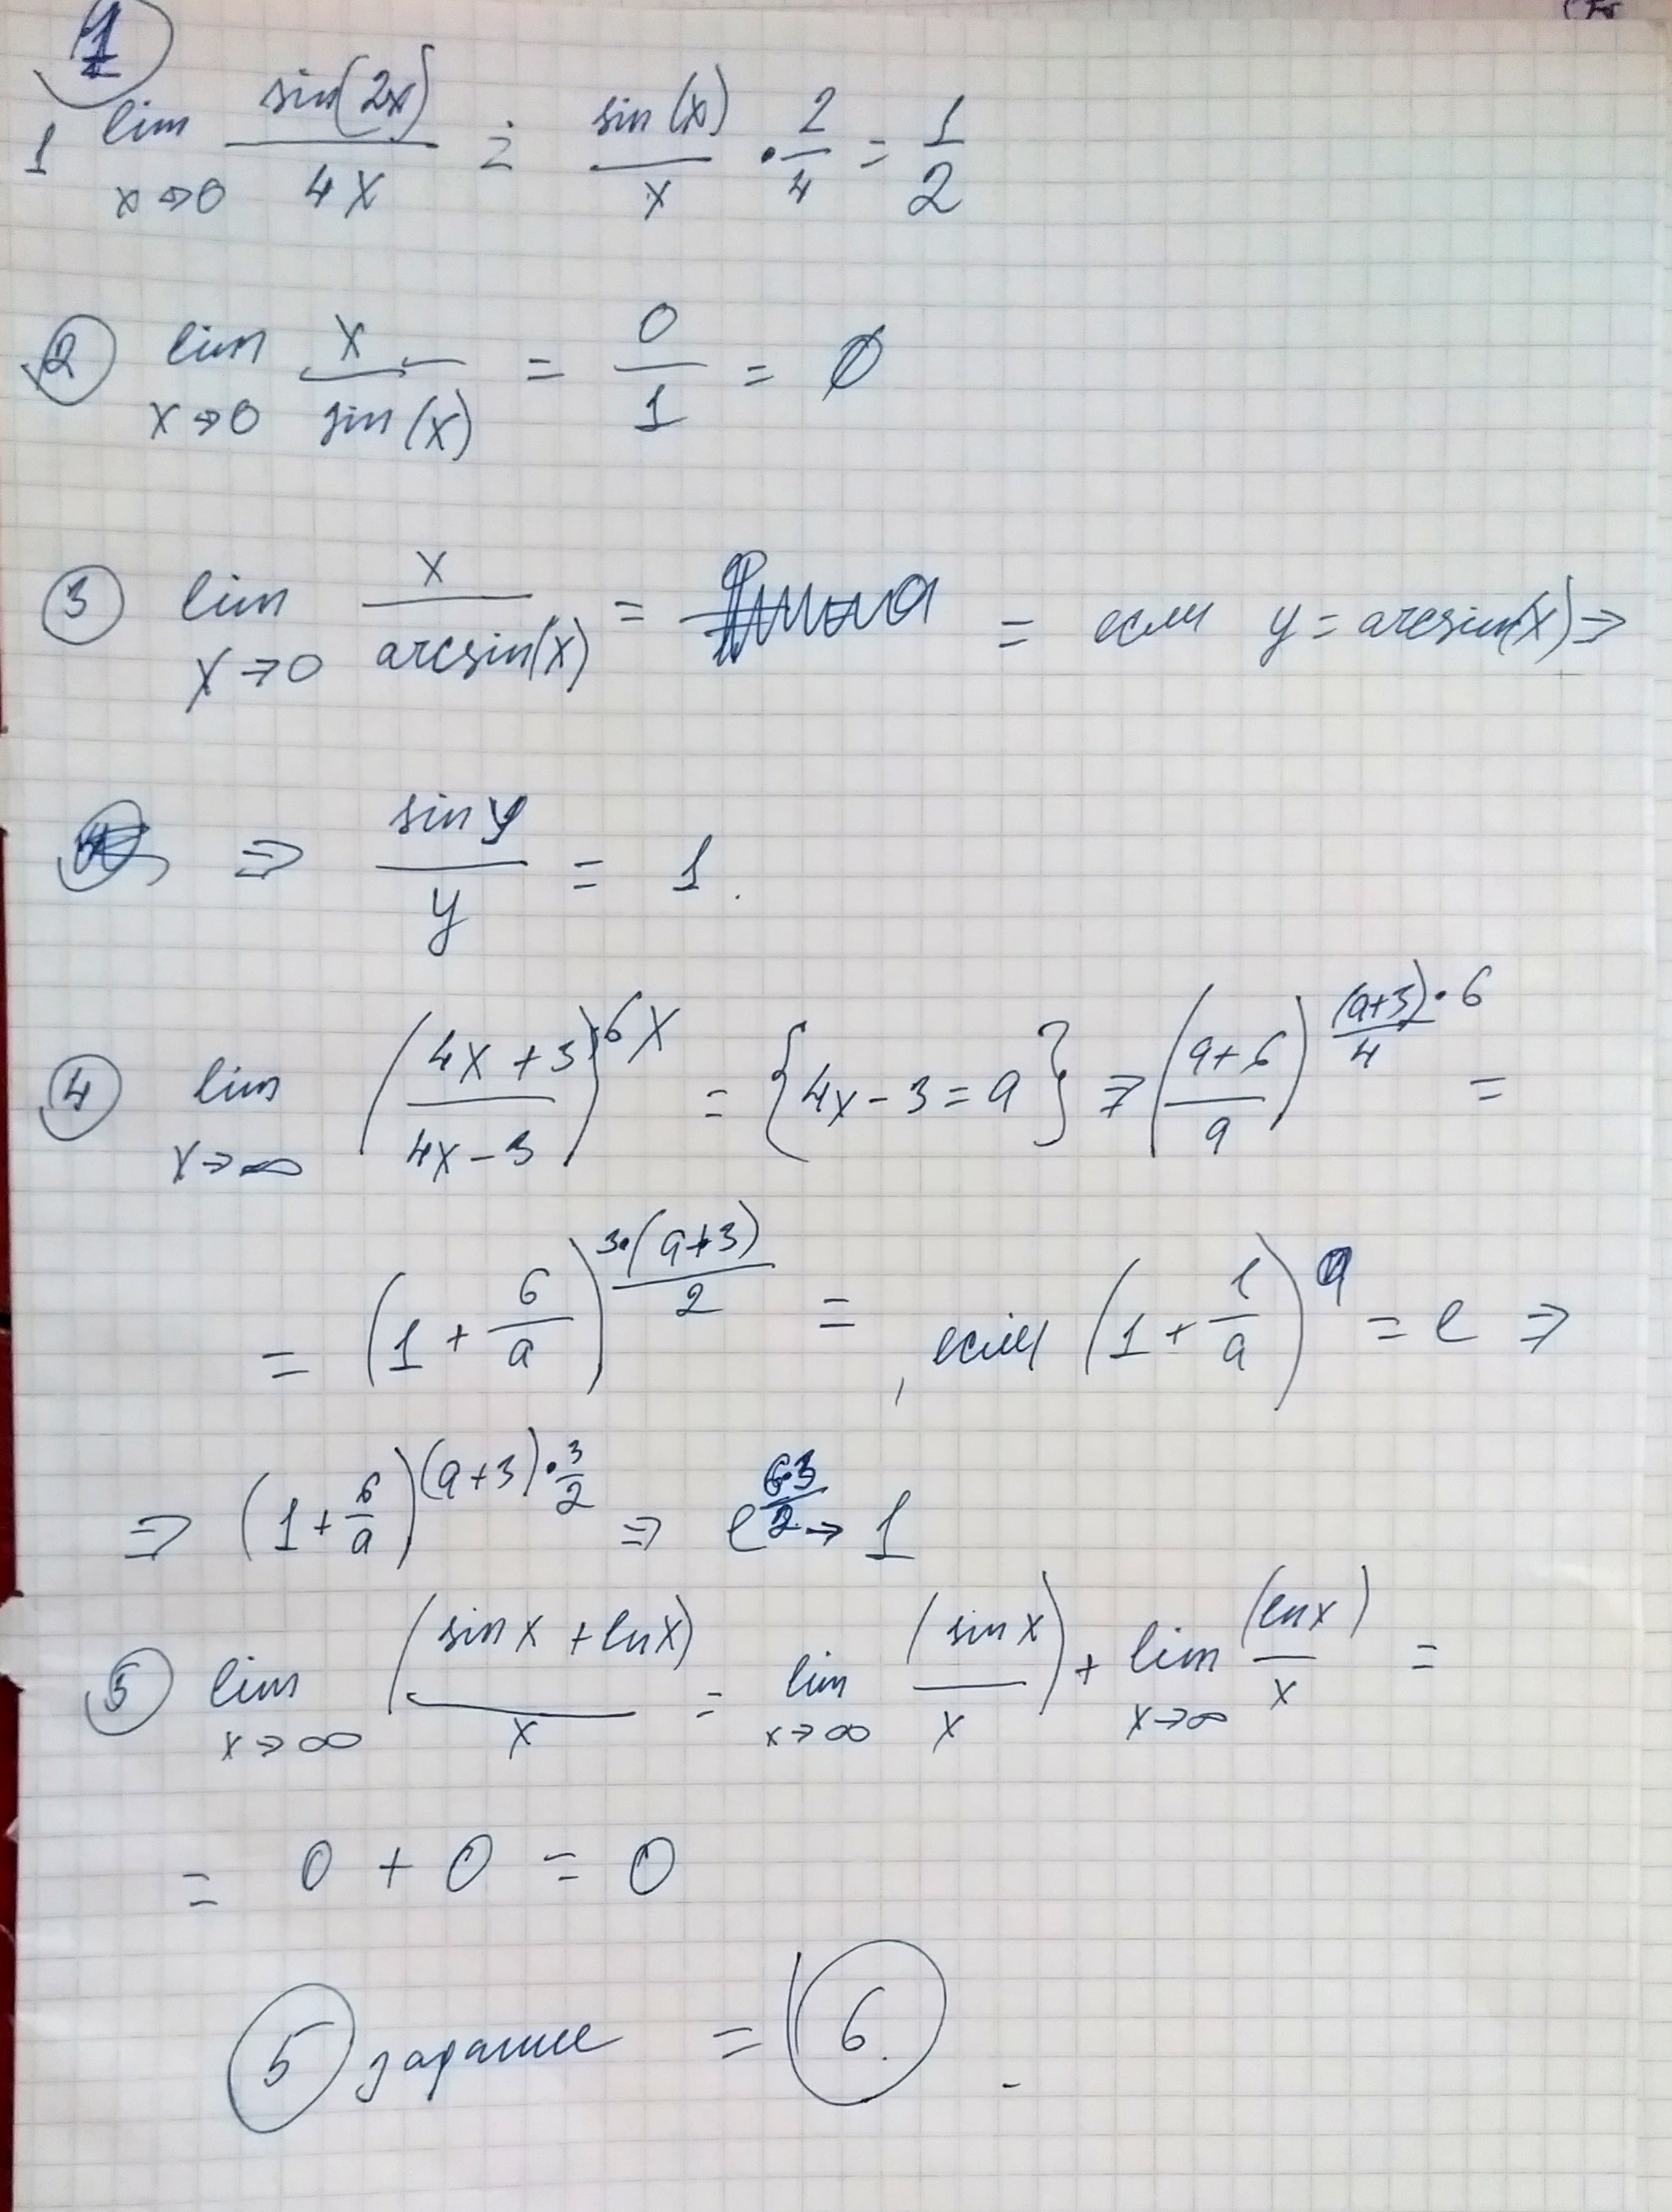 1
1 lim x→0 sin(2x)/4x = sin(x)/x · 2/4 = 1/2
2 lim x→0 x/sin(x) = 0/1 = 0
3 lim x→0 x/arcsin(x) = = если y = arcsin(x) ⇒
⇒ sin y/y = 1.
4 lim x→∞ ((4x+3)/(4x-3))^6x = {4x-3=a} ⇒ ((a+6)/a)^((a+3)/4 · 6) =
= (1+6/a)^(3·(a+3)/2) = , если (1+1/a)^a = e ⇒
⇒ (1+6/a)^((a+3)·3/2) ⇒ e^(6·3/2) → 1
5 lim x→∞ (sin x + ln x)/x = lim x→∞ (sin x)/x + lim x→∞ (ln x)/x =
= 0 + 0 = 0
5 задание = 6.